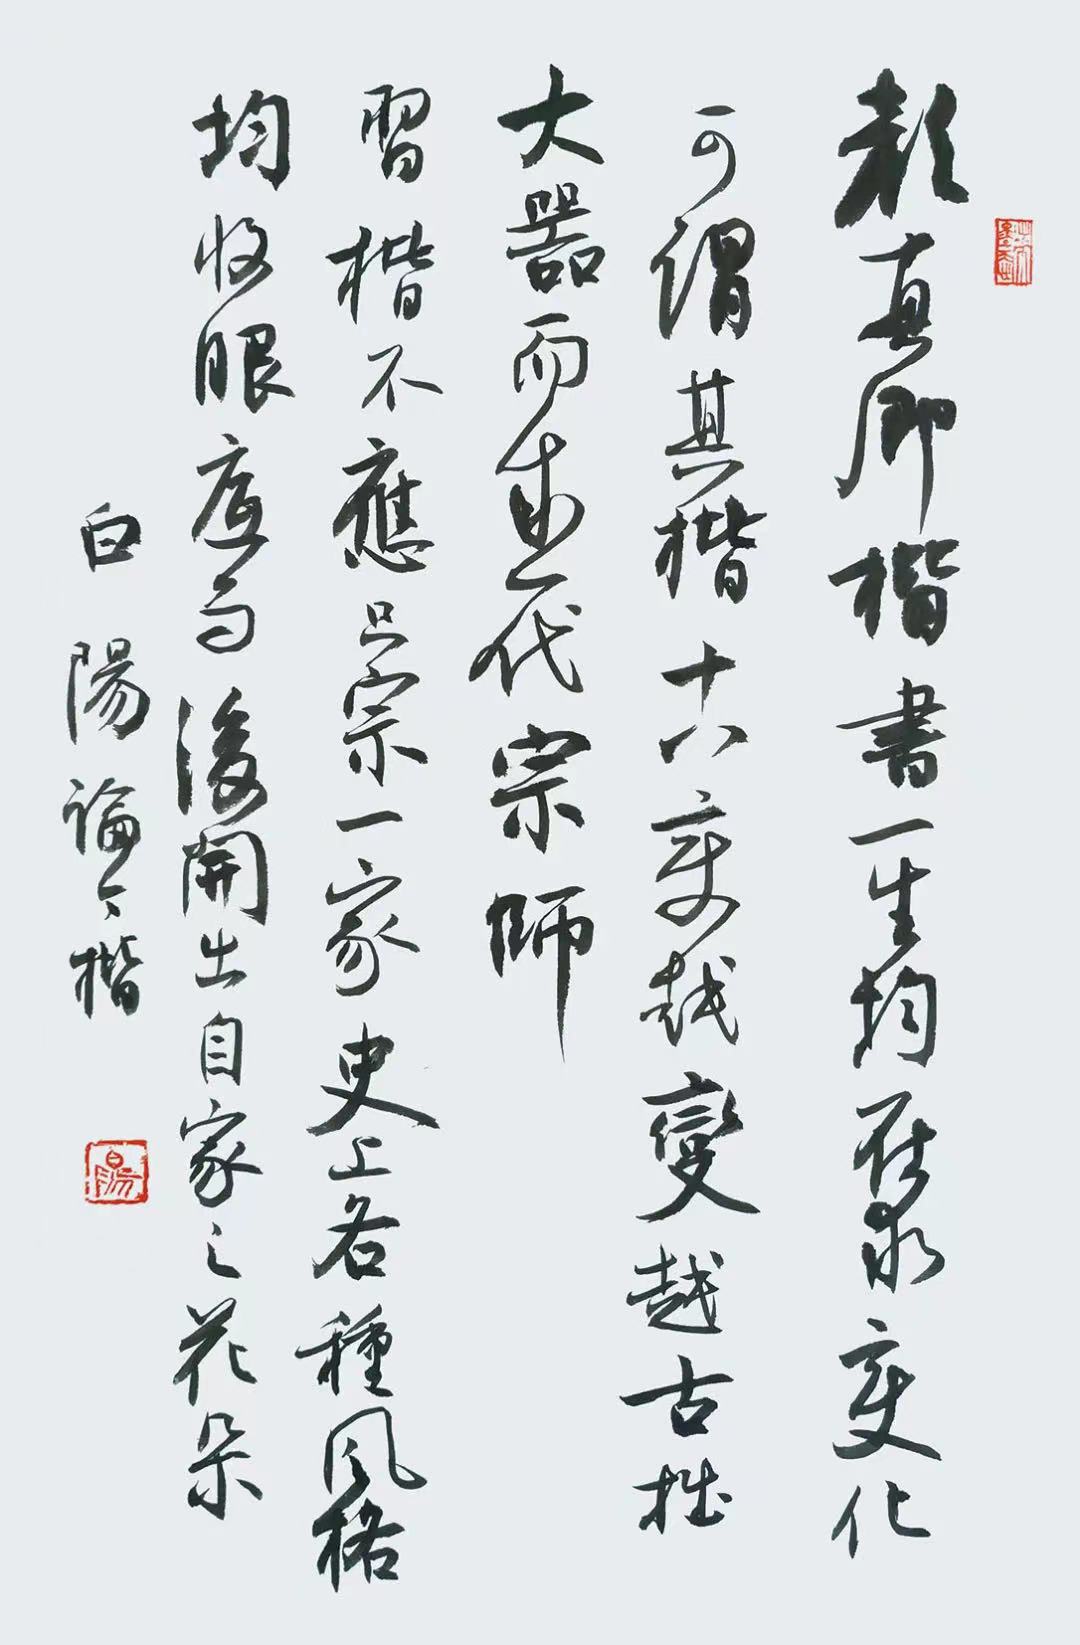 颜真卿楷書一生均在求变化
可謂其楷十八变越變越古拙
大器而成一代宗師
習楷不應只宗一家史上各種風格
均收眼底而後開出自家之花朵
白陽論楷